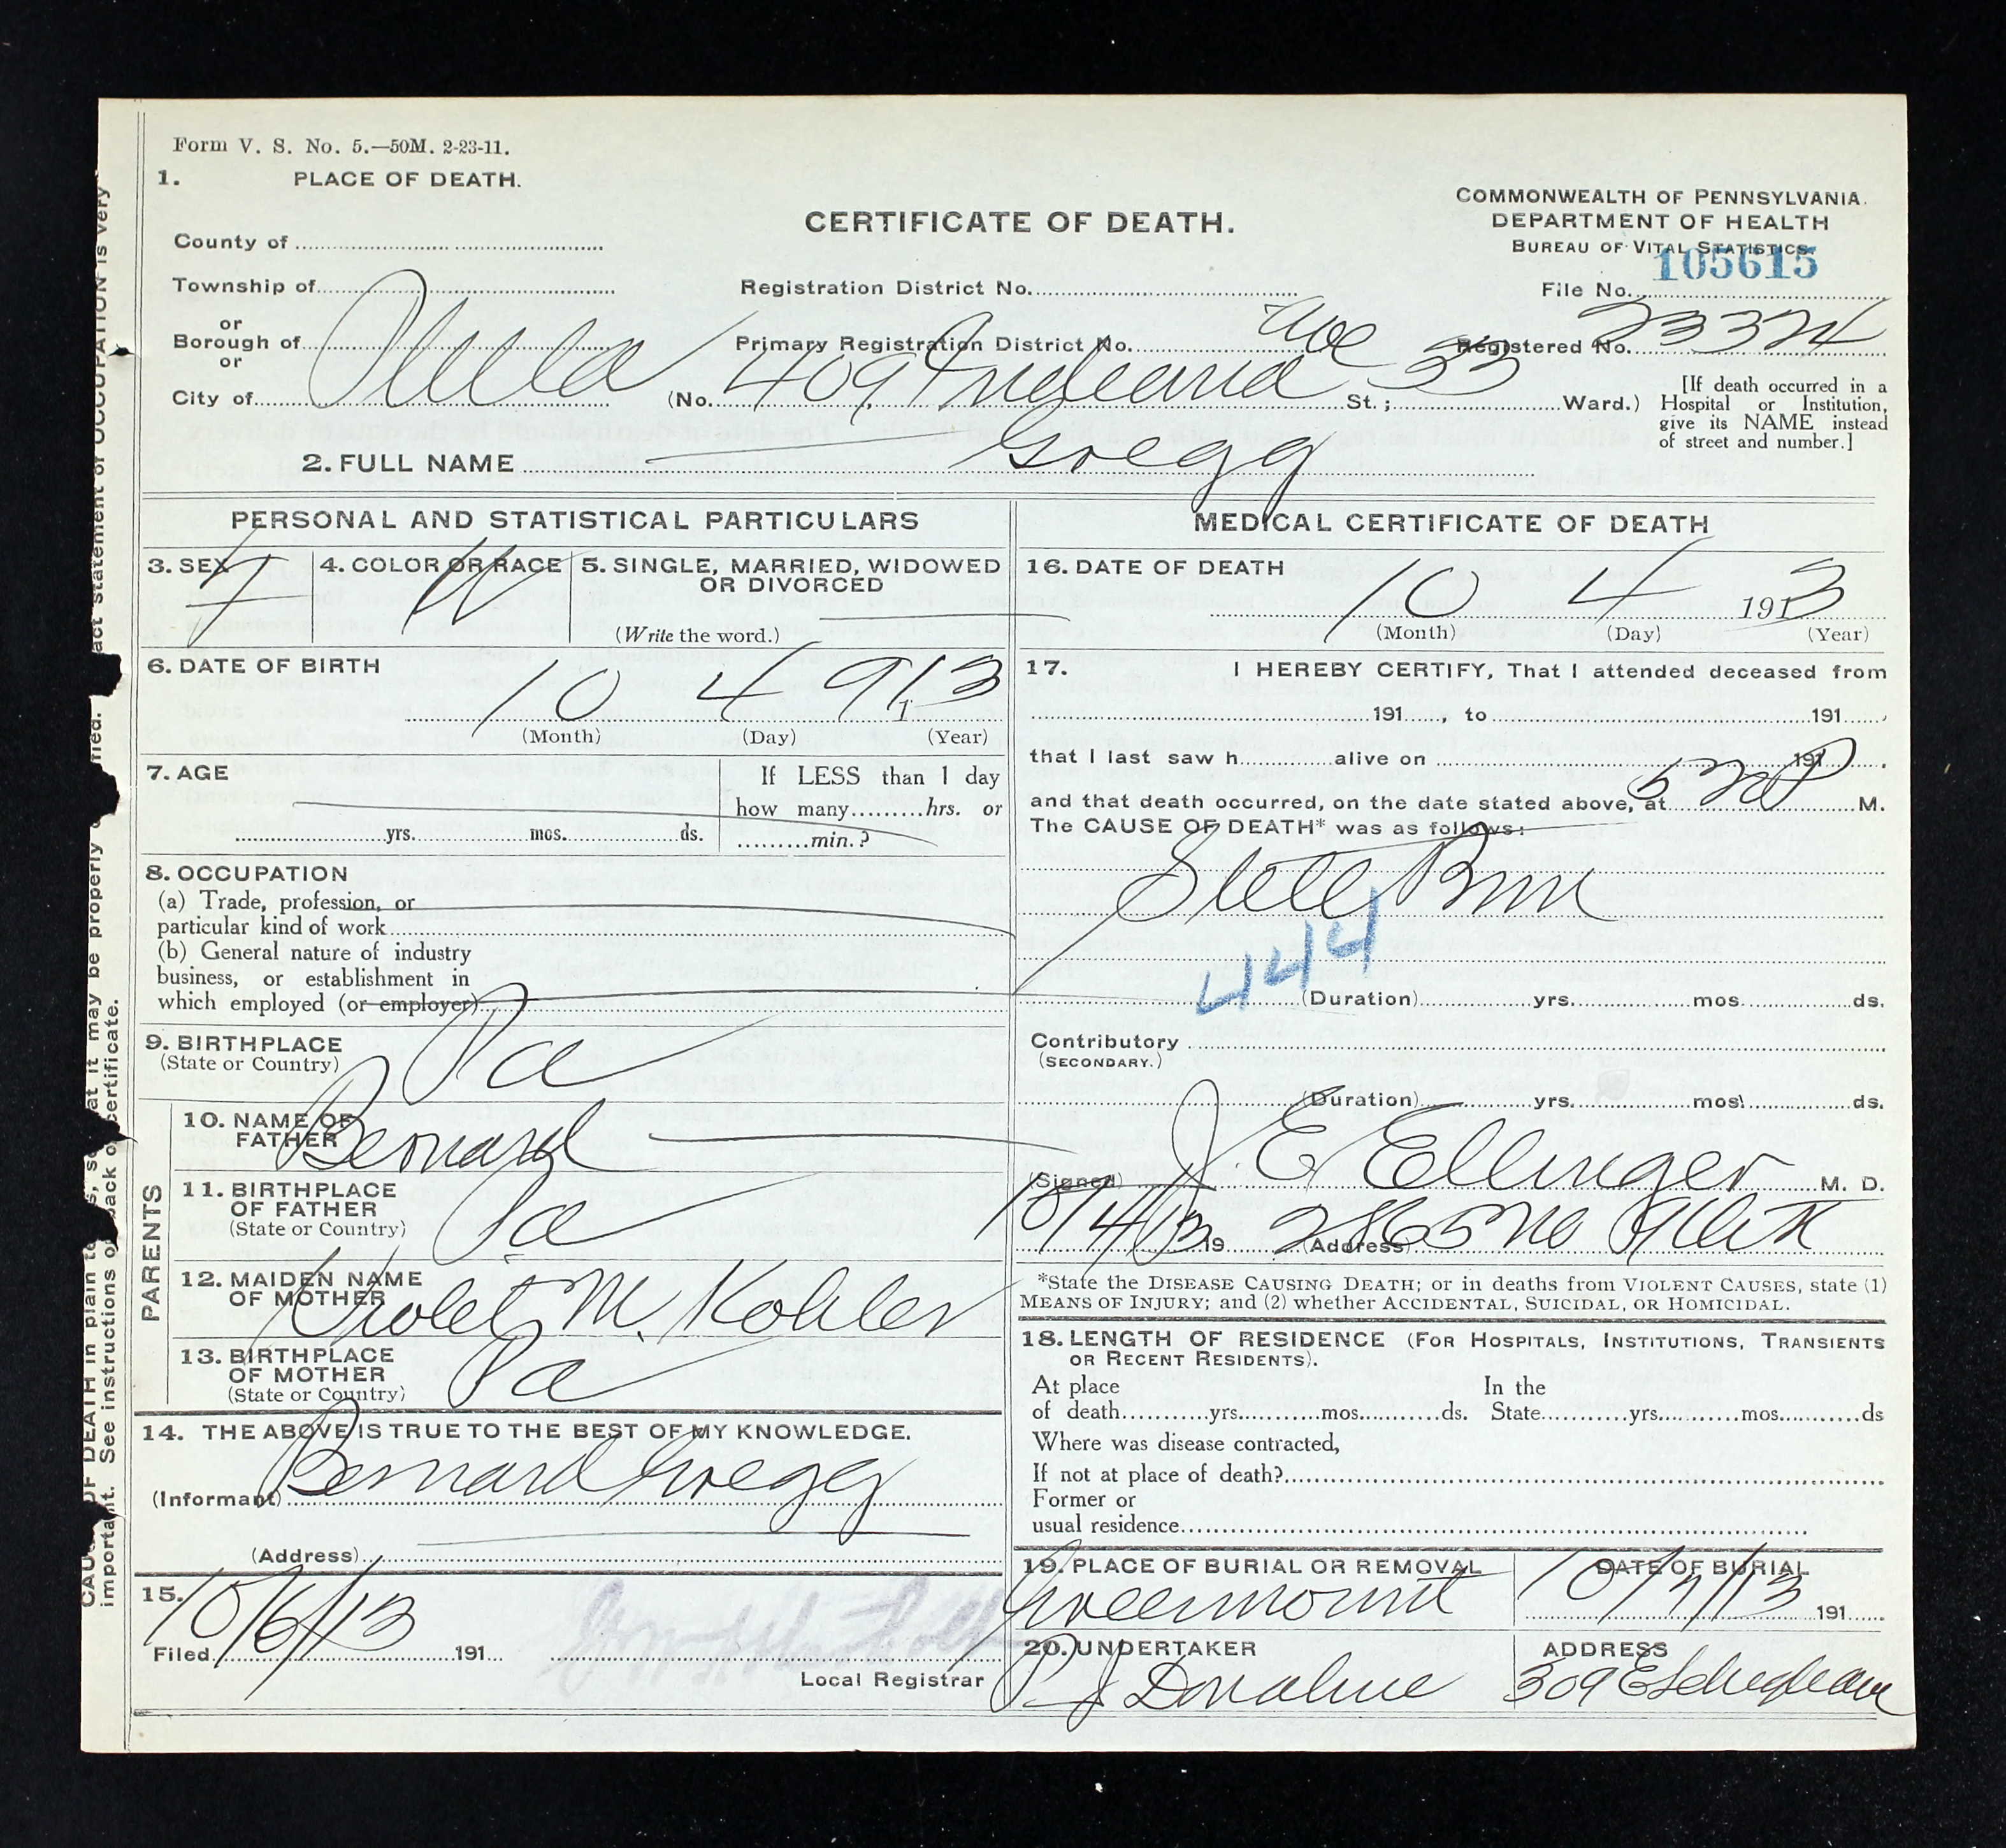 Form V. S. No. 5.—50M. 2-23-11.
1. PLACE OF DEATH.
CERTIFICATE OF DEATH.
COMMONWEALTH OF PENNSYLVANIA.
DEPARTMENT OF HEALTH
BUREAU OF VITAL STATISTICS
105615
County of
Township of
Registration District No.
File No.
or
Borough of
or
City of Phila
Primary Registration District No.
Registered No. 23324
(No. 409 Indiana Ave St.; 33 Ward.)
[If death occurred in a
Hospital or Institution,
give its NAME instead
of street and number.]
2. FULL NAME Gregg
PERSONAL AND STATISTICAL PARTICULARS
3. SEX F
4. COLOR OR RACE W
5. SINGLE, MARRIED, WIDOWED
OR DIVORCED
(Write the word.)
6. DATE OF BIRTH
10 4 913
1
(Month) (Day) (Year)
7. AGE
If LESS than 1 day
how many hrs. or
yrs. mos. ds. min.?
8. OCCUPATION
(a) Trade, profession, or
particular kind of work
(b) General nature of industry
business, or establishment in
which employed (or employer)
9. BIRTHPLACE
(State or Country) Pa
PARENTS
10. NAME OF
FATHER Bernard
11. BIRTHPLACE
OF FATHER
(State or Country) Pa
12. MAIDEN NAME
OF MOTHER Violet M. Kohler
13. BIRTHPLACE
OF MOTHER
(State or Country) Pa
14. THE ABOVE IS TRUE TO THE BEST OF MY KNOWLEDGE.
(Informant) Bernard Gregg
(Address)
15.
Filed 10/6/13 191
Local Registrar
MEDICAL CERTIFICATE OF DEATH
16. DATE OF DEATH
10 4 1913
(Month) (Day) (Year)
17. I HEREBY CERTIFY, That I attended deceased from
191 , to 191 ,
that I last saw h alive on 191 .
and that death occurred, on the date stated above, at 5 P M.
The CAUSE OF DEATH* was as follows:
Still Born
444
(Duration) yrs. mos. ds.
Contributory
(SECONDARY.)
(Duration) yrs. mos. ds.
(Signed) J. E. Ellinger M. D.
10/4/13 19 (Address) 2865 No
*State the DISEASE CAUSING DEATH; or in deaths from VIOLENT CAUSES, state (1)
MEANS OF INJURY; and (2) whether ACCIDENTAL, SUICIDAL, OR HOMICIDAL.
18. LENGTH OF RESIDENCE (FOR HOSPITALS, INSTITUTIONS, TRANSIENTS
OR RECENT RESIDENTS).
At place In the
of death yrs. mos. ds. State yrs. mos. ds
Where was disease contracted,
If not at place of death?
Former or
usual residence
19. PLACE OF BURIAL OR REMOVAL
Greenmount
DATE OF BURIAL
10/7/13 191
20. UNDERTAKER
P J Donahue
ADDRESS
309 E
important. See instructions on back of certificate.